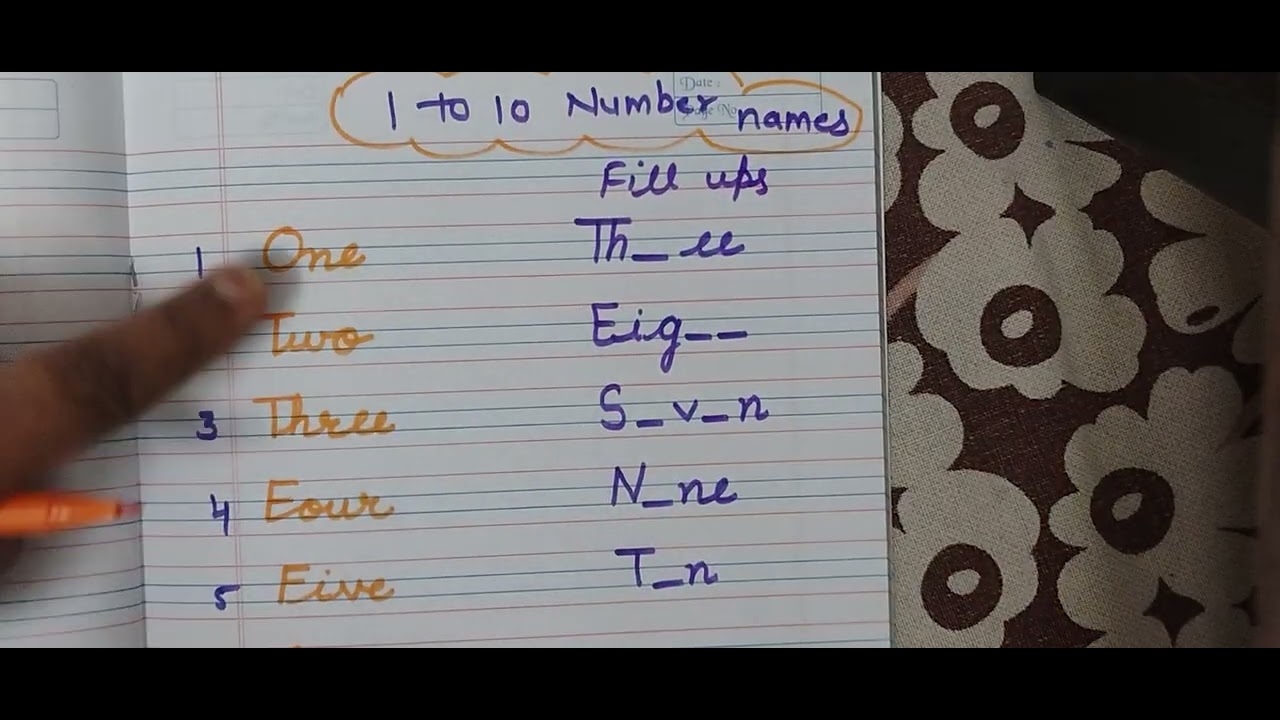 Date :
1 to 10 Number names
Page No
Fill ups
1 One Th_ee
Two Eig__
3 Three S_v_n
4 Four N_ne
5 Five T_n